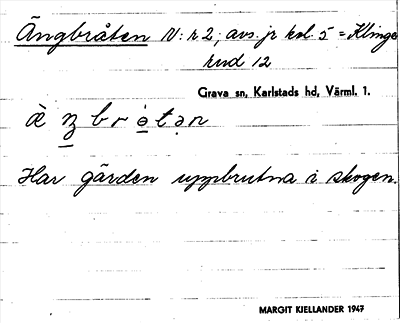 Ängbråten N: r 2, avs. jr kol. 5 = Klinge
rud 12
Grava sn, Karlstads hd, Värml. 1.
Har gården uppbrutna i skogen.
MARGIT KJELLANDER 1947